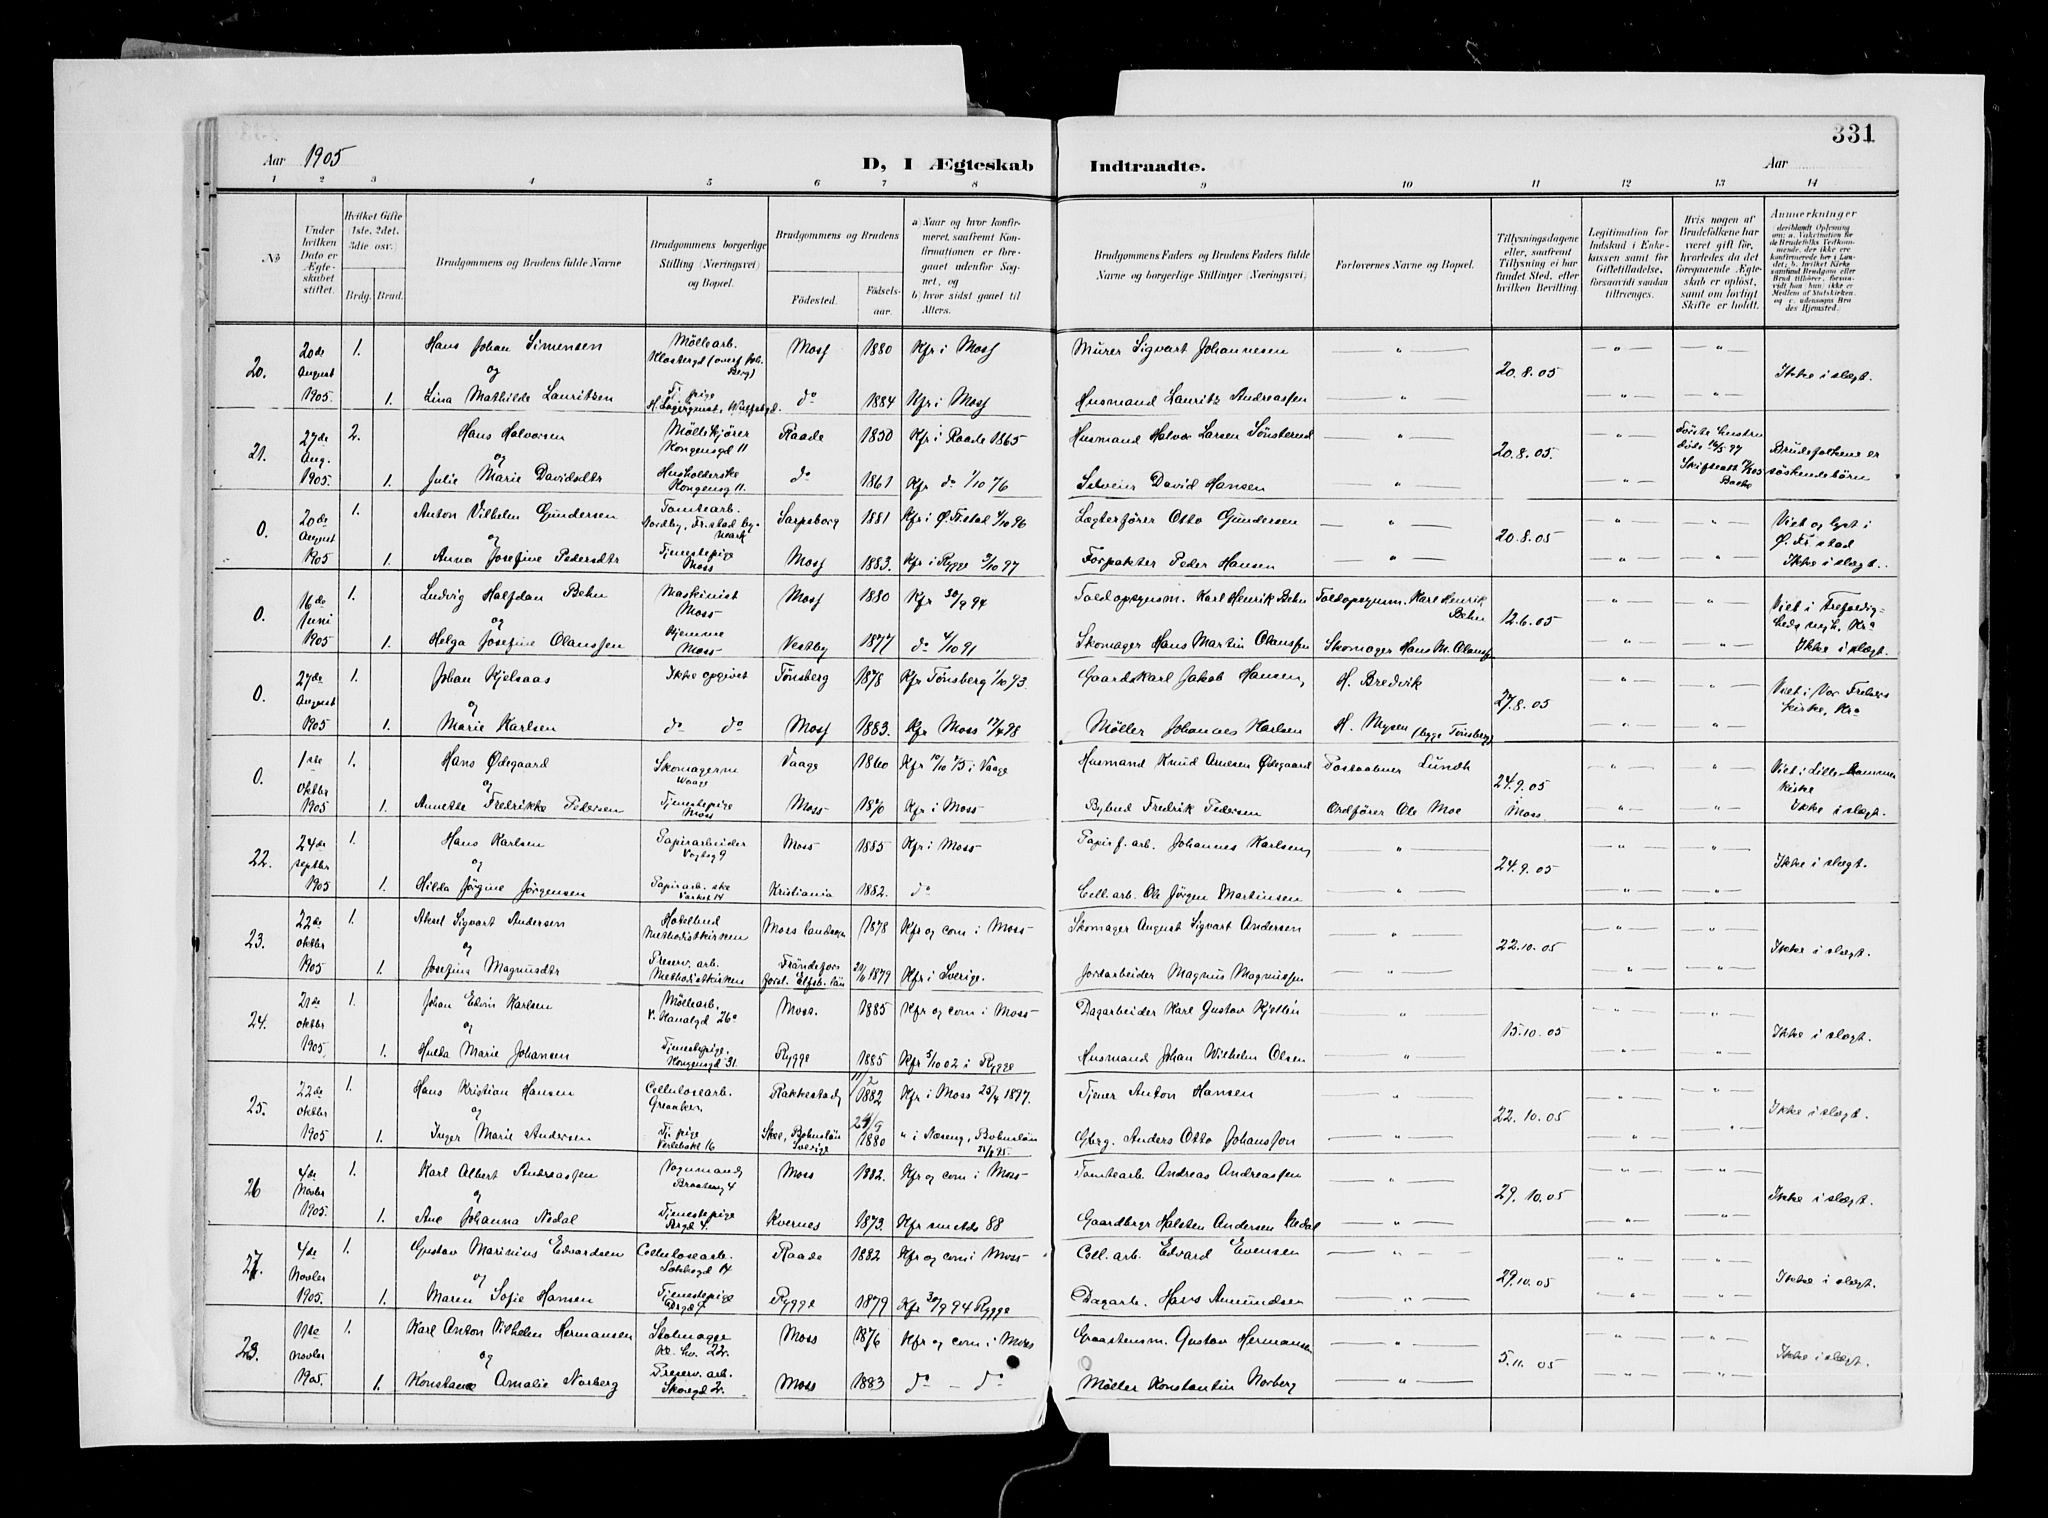 331
Aar 1905 D, I Ægteskab Indtraadte. Aar
1 2 3 4 5 6 7 8 9 10 11 12 13 14
No
Under hvilken Dato er Ægteskabet stiftet.
Hvilket Gifte 1ste, 2det, 3die osv.
Brdg. Brud.
Brudgommens og Brudens fulde Navne
Brudgommens borgerlige Stilling (Næringsvei) og Bopæl.
Brudgommens og Brudens
Fødested. Fødselsaar.
a) Naar og hvor konfirmeret, saafremt Konfirmationen er foregaaet udenfor Sognet, og
b) hvor sidst gaaet til Alters.
Brudgommens Faders og Brudens Faders fulde Navne og borgerlige Stillinger (Næringsvei).
Forlovernes Navne og Bopæl.
Tillysningsdagene eller, saafremt Tillysning ei har fundet Sted, efter hvilken Bevilling.
Legitimation for Indskud i Enkekassen samt for Giftetilladelse, forsaavidt saadan tiltrænges.
Hvis nogen af Brudefolkene har været gift før, hvorledes da det foregaaende Ægteskab er opløst, samt om lovligt Skifte er holdt.
Anmerkninger
20. 20de August 1905 1. Hans Johan Simensen Møllearb. Mosf 1880 Kfr i Mosf Murer Sigvart Johannesen — " — 20.8.05 — " — — " — Ikke i slægt.
og
1. Lina Mathilde Lauritsen Tj. pige do 1884 Kfr i Mosf Husmand Lauritz Andreassen — " — — " — — " —
21. 27de Aug. 1905 2. Hans Halvorsen Møllekjører Kongensgd 11 Raade 1850 Kfr i Raade 1865 Husmand Halvor Larsen Sønsterud — " — 20.8.05. — " — Første hustru døde Brudefolkene er søskendebørn
og
1. Julie Marie Davidsdtr Husholderske Kongensg 11. do 1861 Kfr do 1/10 76 Selveier David Hansen — " — — " —
0. 20de August 1905 1. Anton Vilhelm Gundersen Tomtearb. Sarpsborg 1881 Kfr i Ø. Fr.stad 4/10 96 Lægterfører Otto Gundersen — " — 20.8.05 — " — — " — Viet og lyst i Ø. Fr stad
og
1. Anna Josefine Pedersdtr Tjenestepige Moss Mosf 1883. Kfr i Rygge 3/10 97 Forpakter Peder Hansen — " — — " — — " — Ikke i slægt.
0. 16de Juni 1905 1. Ludvig Halfdan Behn Maskinist Moss Mosf 1880 Kfr 30/9 94 Toldopsynsm. Karl Henrik Behn Toldopsynsm. Karl Henrik Behn 12.6.05 — " — — " — Viet i Trefoldigheds
og
1. Helga Josefine Olanssen Hjemme Moss Vestby 1877 do 4/10 91 Skomager Hans Martin Olanssen Skomager Hans M. Olanssen — " — — " — Ikke i slægt.
0. 27de August 1905 1. Johan Kjelsaas Ikke opgivet Tønsberg 1878 Kfr Tønsberg 1/10 93. Gaardskarl Jakob Hansen H. Bredvik 27.8.05 — " — — " — Viet i Vor Frelsers kirke, Kra
og
1. Marie Karlsen do do Mosf 1883. Kfr Moss 17/4 98 Møller Johannes Karlsen H. Mysen (begge Tønsberg) — " — — " —
0. 1ste oktbr 1905 1. Hans Ødegaard Vaage 1860 Kfr 10/10 75 i Vaage Husmand Knud Amesen Ødegaard Postaabner Lundh 24.9.05 i Moss — " — — " — Viet i Lillehammer kirke
og
1. Annette Fredrikke Pedersen Tjenestepige Moss Moss 1870 Kfr i Moss Bybud Fredrik Pedersen Ordfører Ole Moe — " — — " — Ikke i slægt.
22. 24de septbr 1905 1. Hans Karlsen Papirarbeider Vogtsg 9 Moss 1885 Kfr i Moss Papirf. arb. Johannes Karlsen — " — 24.9.05 — " — — " — Ikke i slægt.
og
1. Hilda Jørgine Jørgensen Papirarb. ske Kristiania 1882. do Cell. arb. Ole Jørgen Martinsen — " — — " — — " —
23. 22de oktbr 1905 1. Aksel Sigvart Andersen Hotelbud Methodistkirken Moss landsogn 1878 Kfr og com i Moss Skomager August Sigvart Andersen — " — 22.10.05 — " — — " — Ikke i slægt.
og
1. Josefina Magnusdtr Preserv. arb. Methodistkirken Frändefors Elfsb. län 1879 Kfr i Sverige. Jordarbeider Magnus Magnussen — " — — " — — " —
24. 21de oktbr 1905. 1. Johan Edvin Karlsen Møllearb. V. Kanalgd 26a Moss. 1885 Kfr og com i Moss Dagarbeider Karl Gustav Kjellin — " — 15.10.05 — " — — " — Ikke i slægt.
og
1. Hulda Marie Johansen Tjenestepige. Kongensgd 31. Rygge 1885 Kfr 5/10 02 i Rygge Husmand Johan Wilhelm Olsen — " — — " — — " —
25. 22de oktbr 1905 1. Hans Kristian Hansen Cellulosearb. Greaaker Rakkestad 11/2 1882 Kfr i Moss 25/4 1897. Tjener Anton Hansen — " — 22.10.05 — " — — " — Ikke i slægt.
og
1. Inger Marie Andersen Tj. pige Verlebakk 16 Skee, Bohuslän Sverige 24/9 1880 " i Næseng, Bohuslän Gbrg. Anders Otto Johansson — " — — " — — " —
26 4de Novbr 1905. 1. Karl Albert Andreassen Vognmand Moss 1882. Kfr og com i Moss Tomtearb Andreas Andreassen — " — 29.10.05 — " — — " — Ikke i slægt.
og
1. Ane Johanna Nedal Tjenestepige Kvernes 1873 Kfr smsteds 88 Gaardbrgr Halsten Andersen Nedal — " — — " — — " —
27. 4de Novbr 1905. 1. Gustav Marinius Edvardsen Cellulosearb. Raade 1882 Kfr og com i Moss Cell. arb. Edvard Evensen — " — 29.10.05 — " — — " — Ikke i slægt.
og
1. Maren Sofie Hansen Tjenestepige Rygge 1879 Kfr 30/9 94 Rygge Dagarb. Hans Amundsen — " — — " — — " —
28. 11te Novbr 1905. 1. Karl Anton Vilhelm Hermansen Moss 1876 Kfr og com i Moss Graastensm. Gustav Hermansen — " — 5.11.05 — " — — " — Ikke i slægt.
og
1. Konstanse Amalie Norberg Preserv. arb. Skovgd 2. Moss 1883 do – do Møller Konstantin Norberg — " — — " — — " —